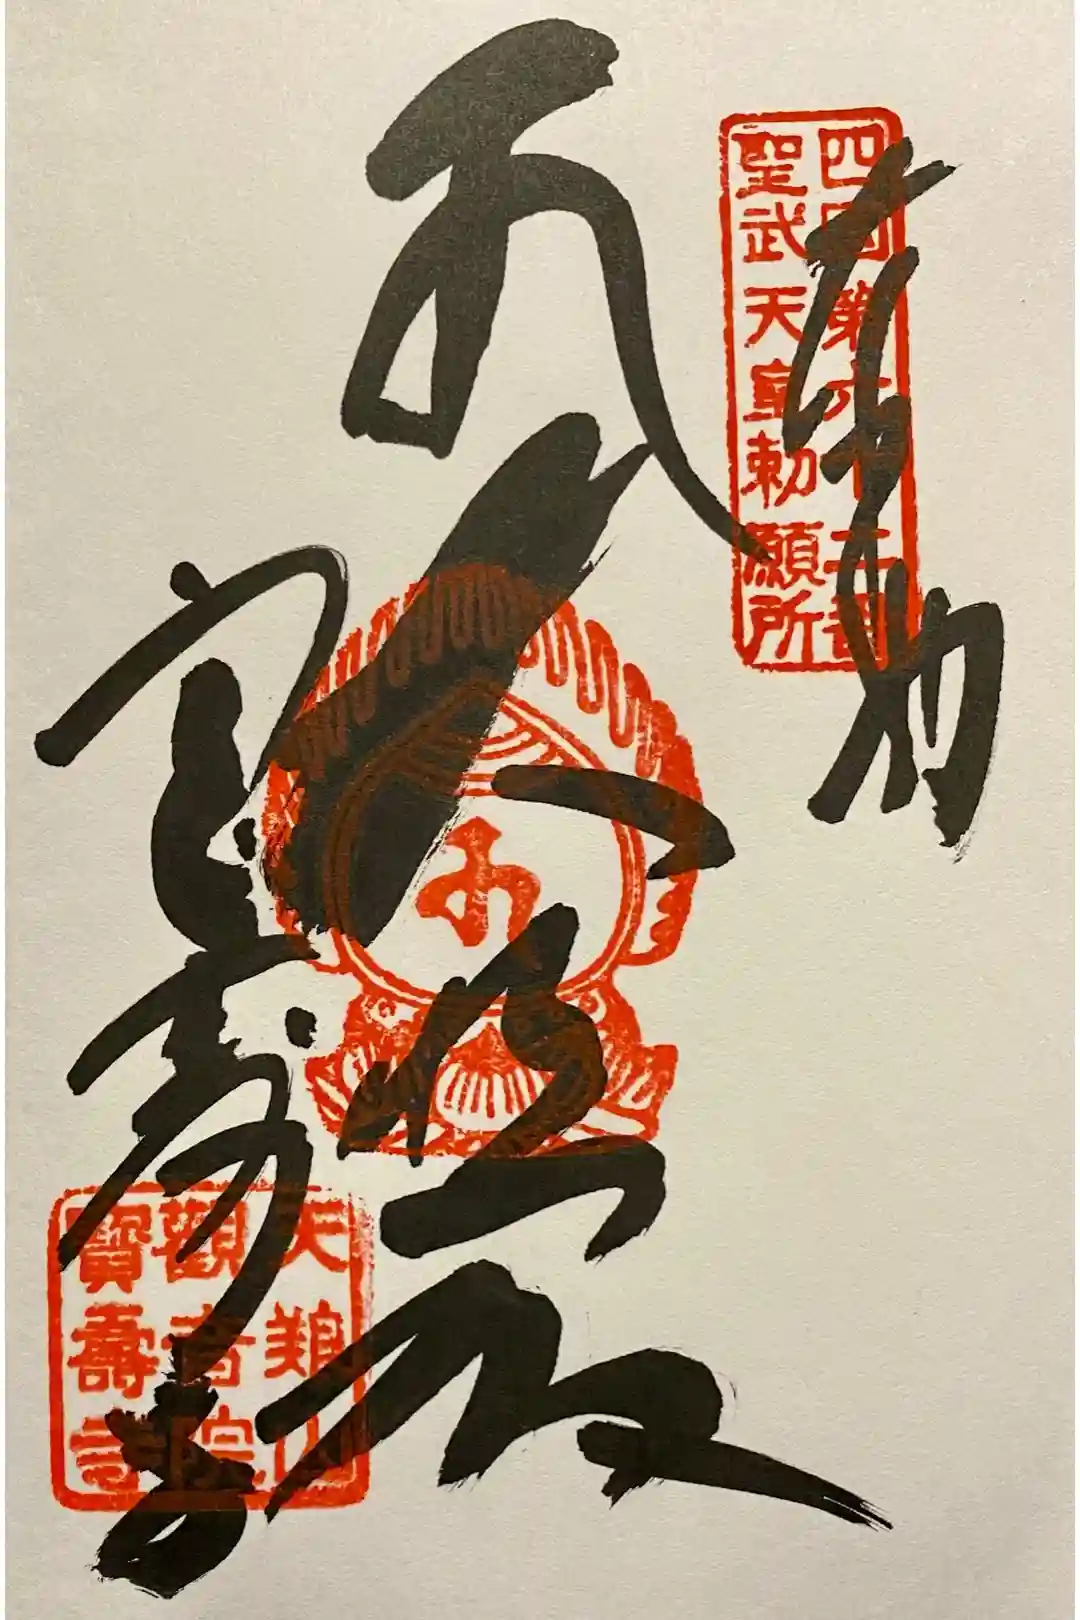 奉納
四国第六十二番
聖武天皇勅願所
大悲殿
宝寿寺
天養山
觀音院
寶壽寺